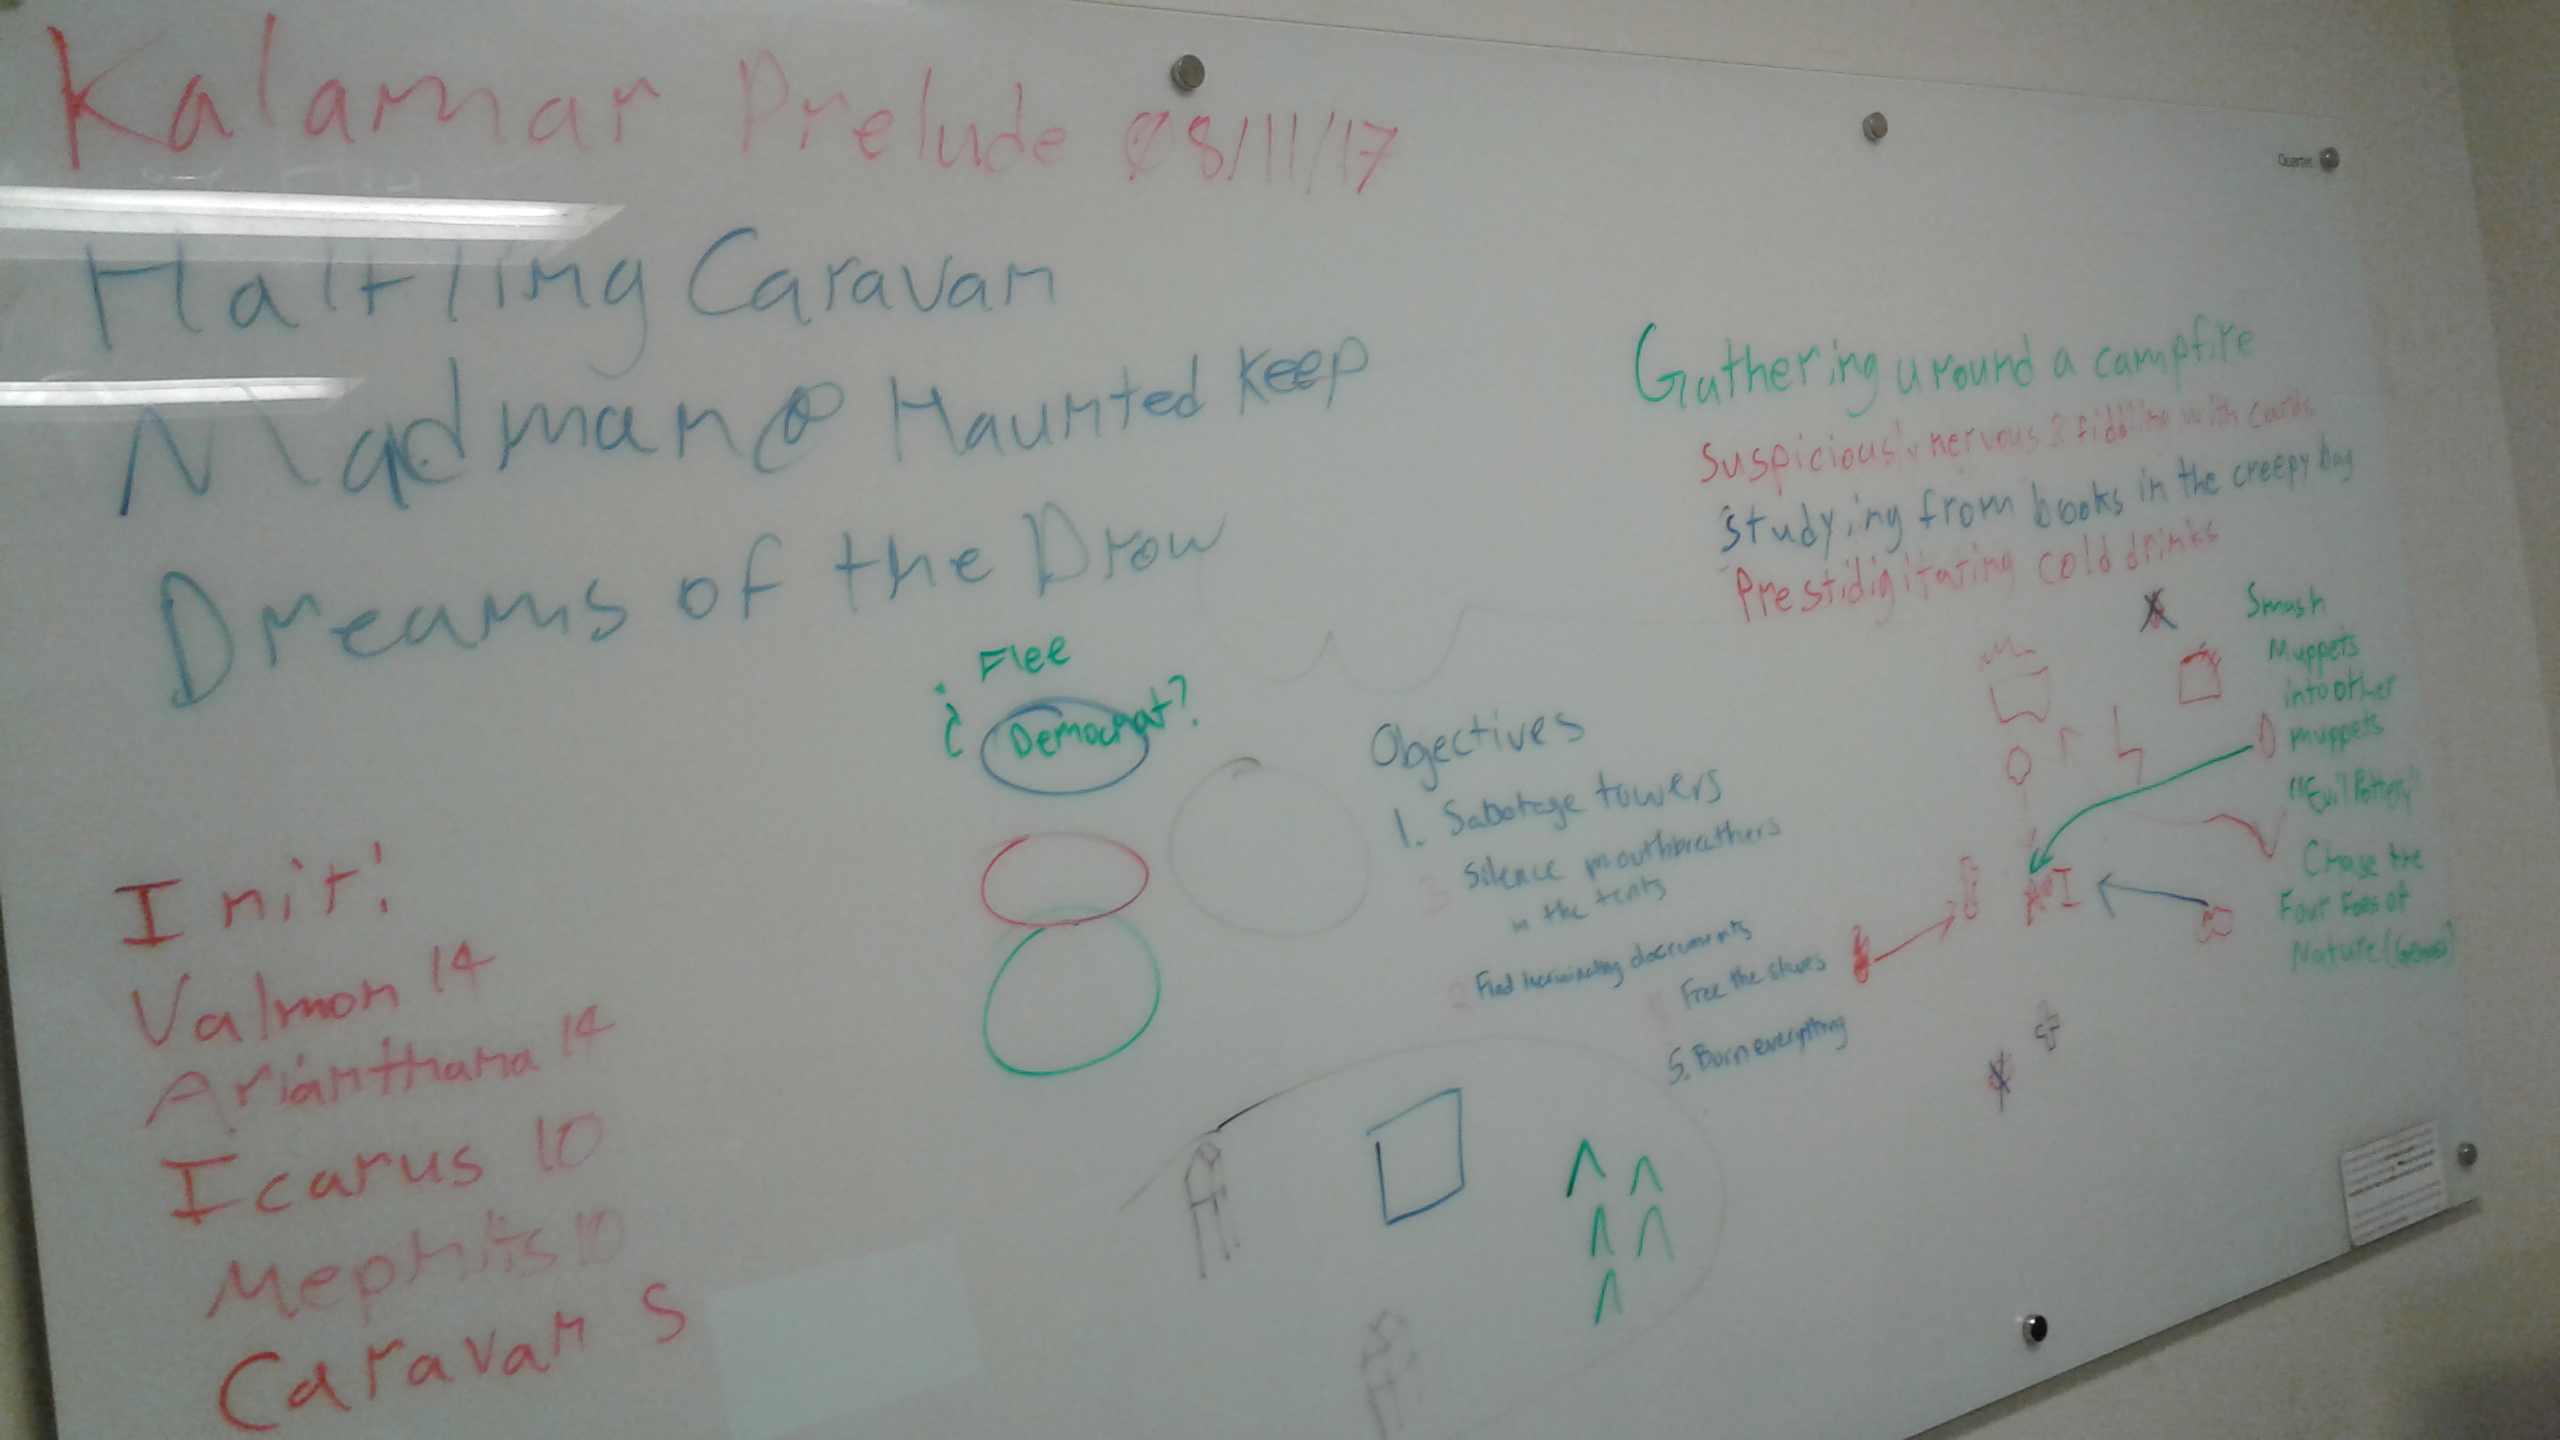 Kalamar Prelude 08/11/17
Halfling Caravan
Madman @ Haunted Keep
Dreams of the Drow
Quartet
Gathering around a campfire
Suspiciously nervous & fiddling with cards
Studying from books in the creepy bag
Prestidigitating cold drinks
Flee
¿ Democrat?
Objectives
1. Sabotage towers
3 Silence mouthbreathers
in the tents
2 Find incriminating documents
Free the slaves
5. Burn everything
Smash
Muppets
into other
muppets
"Evil Pottery"
Chase the
Four Foes of
Nature
Init:
Valmon 14
Arianthana 14
Icarus 10
Mephits 10
Caravan 5